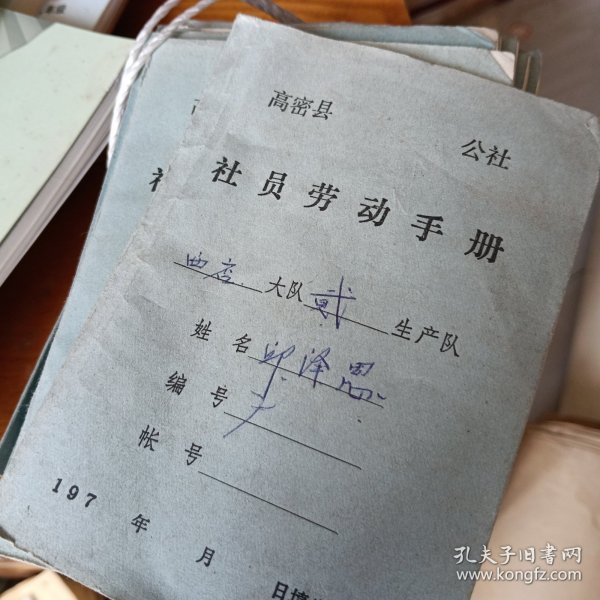 高密县
公社
社员劳动手册
西店 大队 贰 生产队
姓名 泽恩
编号
帐号
197 年 月
日填
孔夫子旧书网
www.kongfz.com